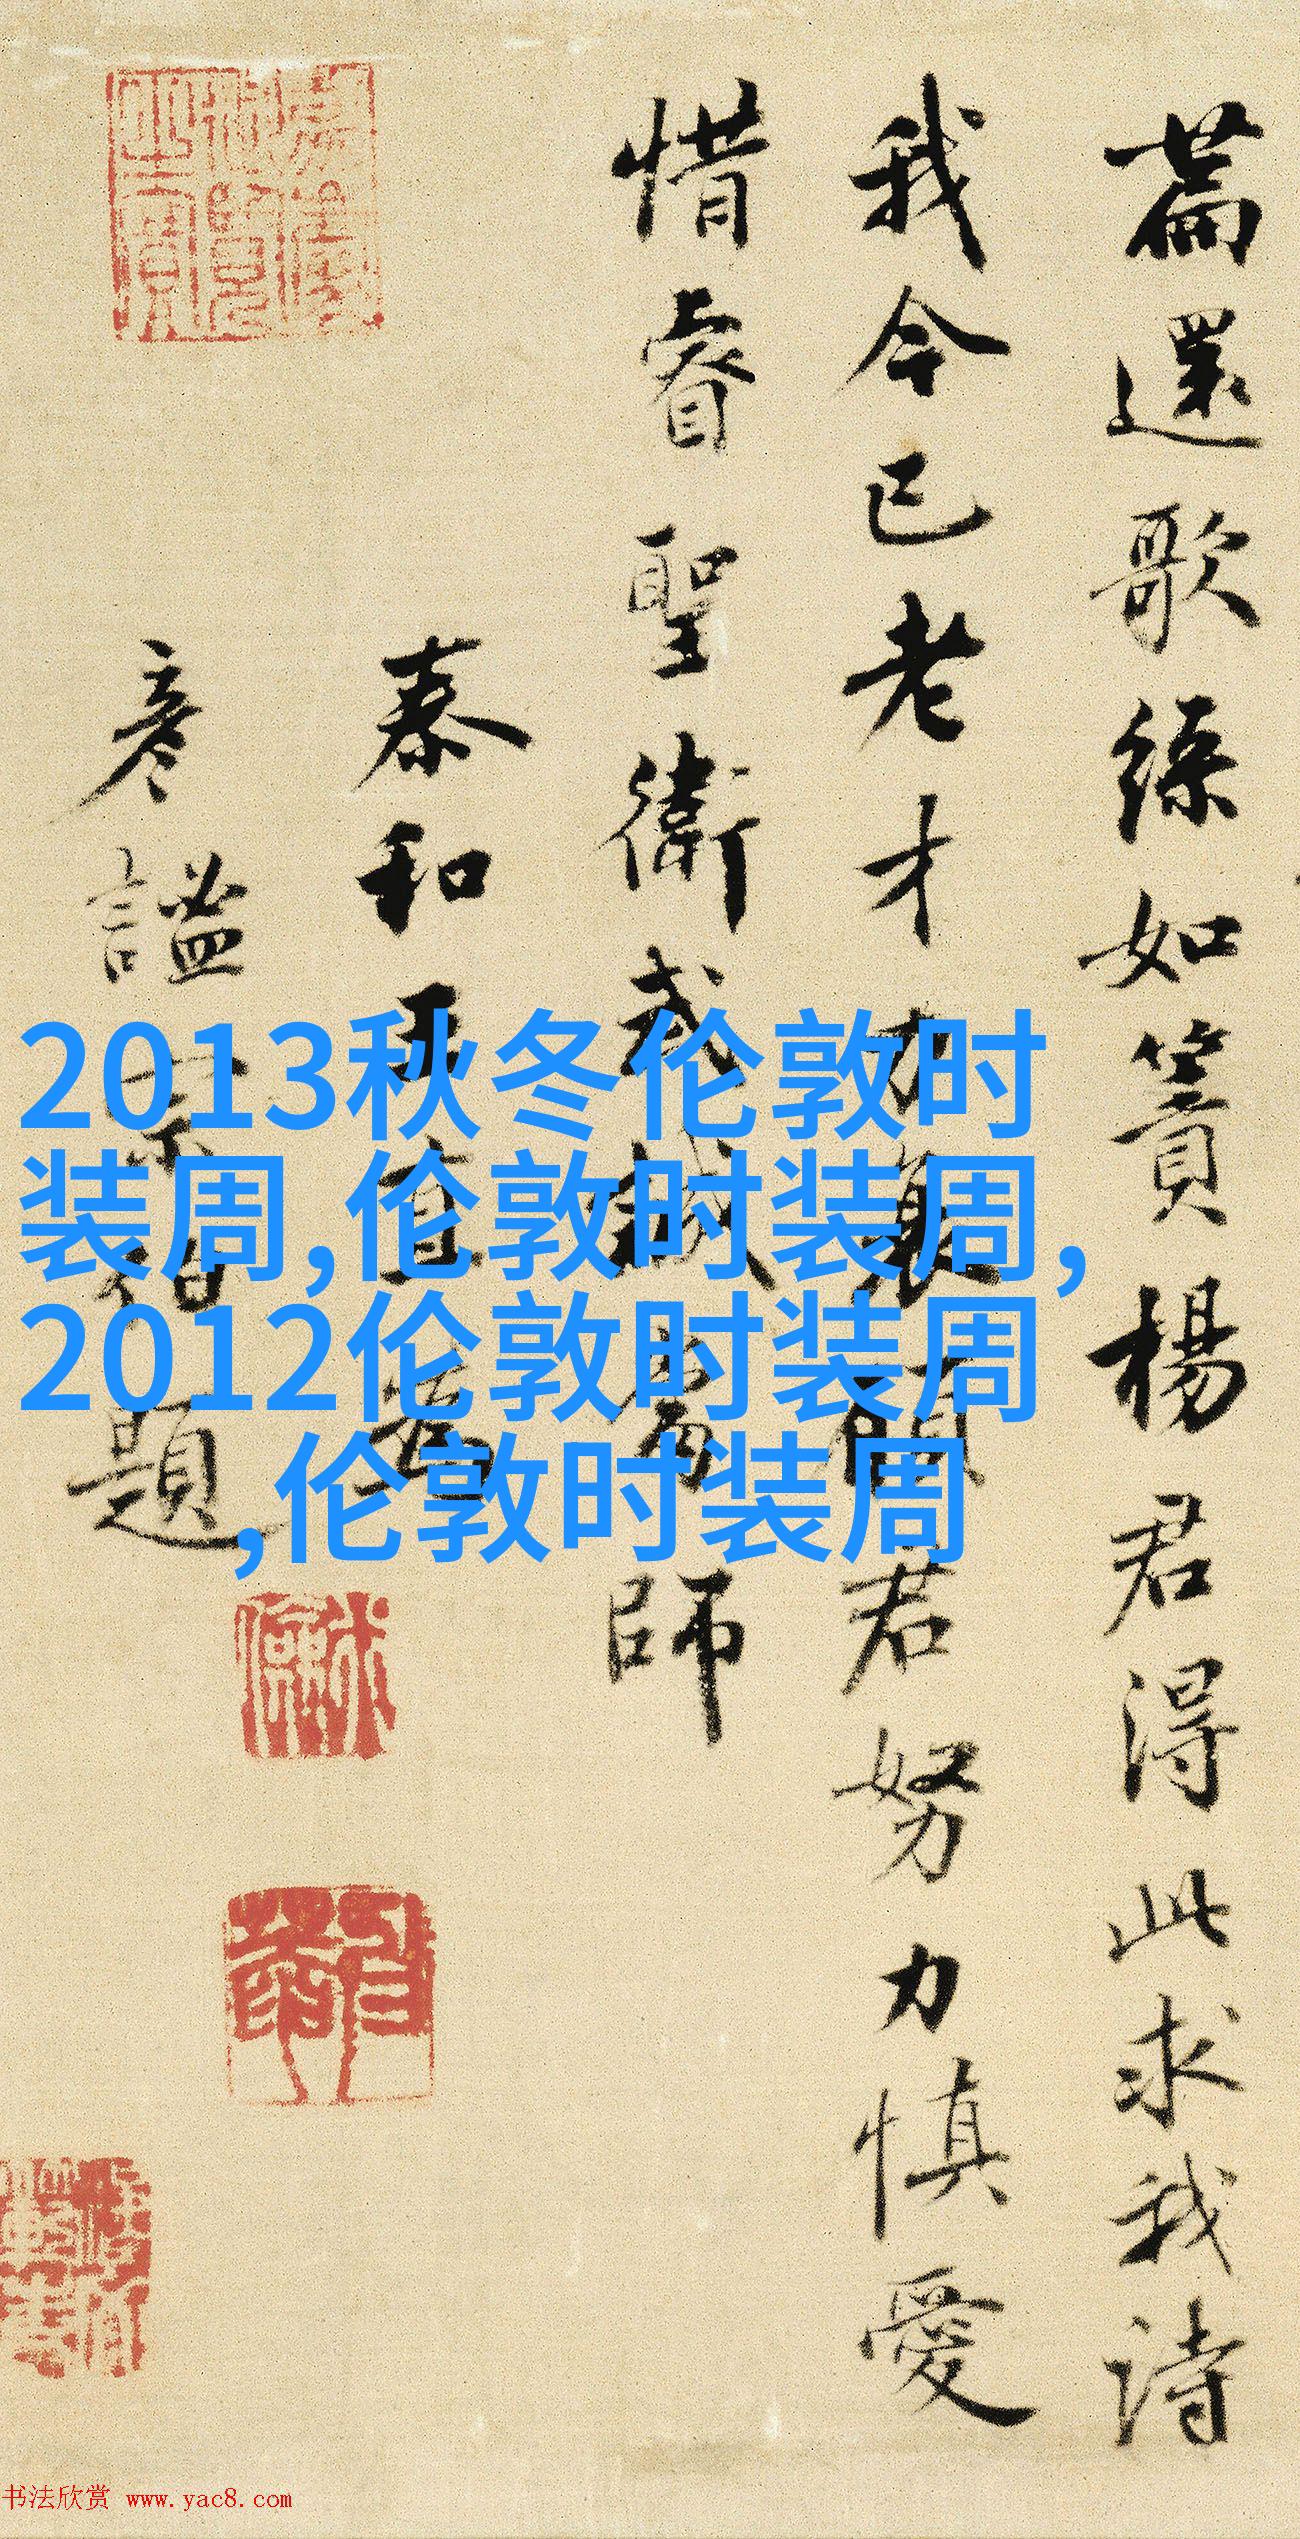 篇還歌綠如簀楊君得此求我詩
我今已老才力衰願君努力慎愛
惜睿聖衛武誠為師
泰和王直為
彥謐宗伯題
2013秋冬伦敦时
装周,伦敦时装周,
2012伦敦时装周
,伦敦时装周
书法欣赏 www.yac8.com